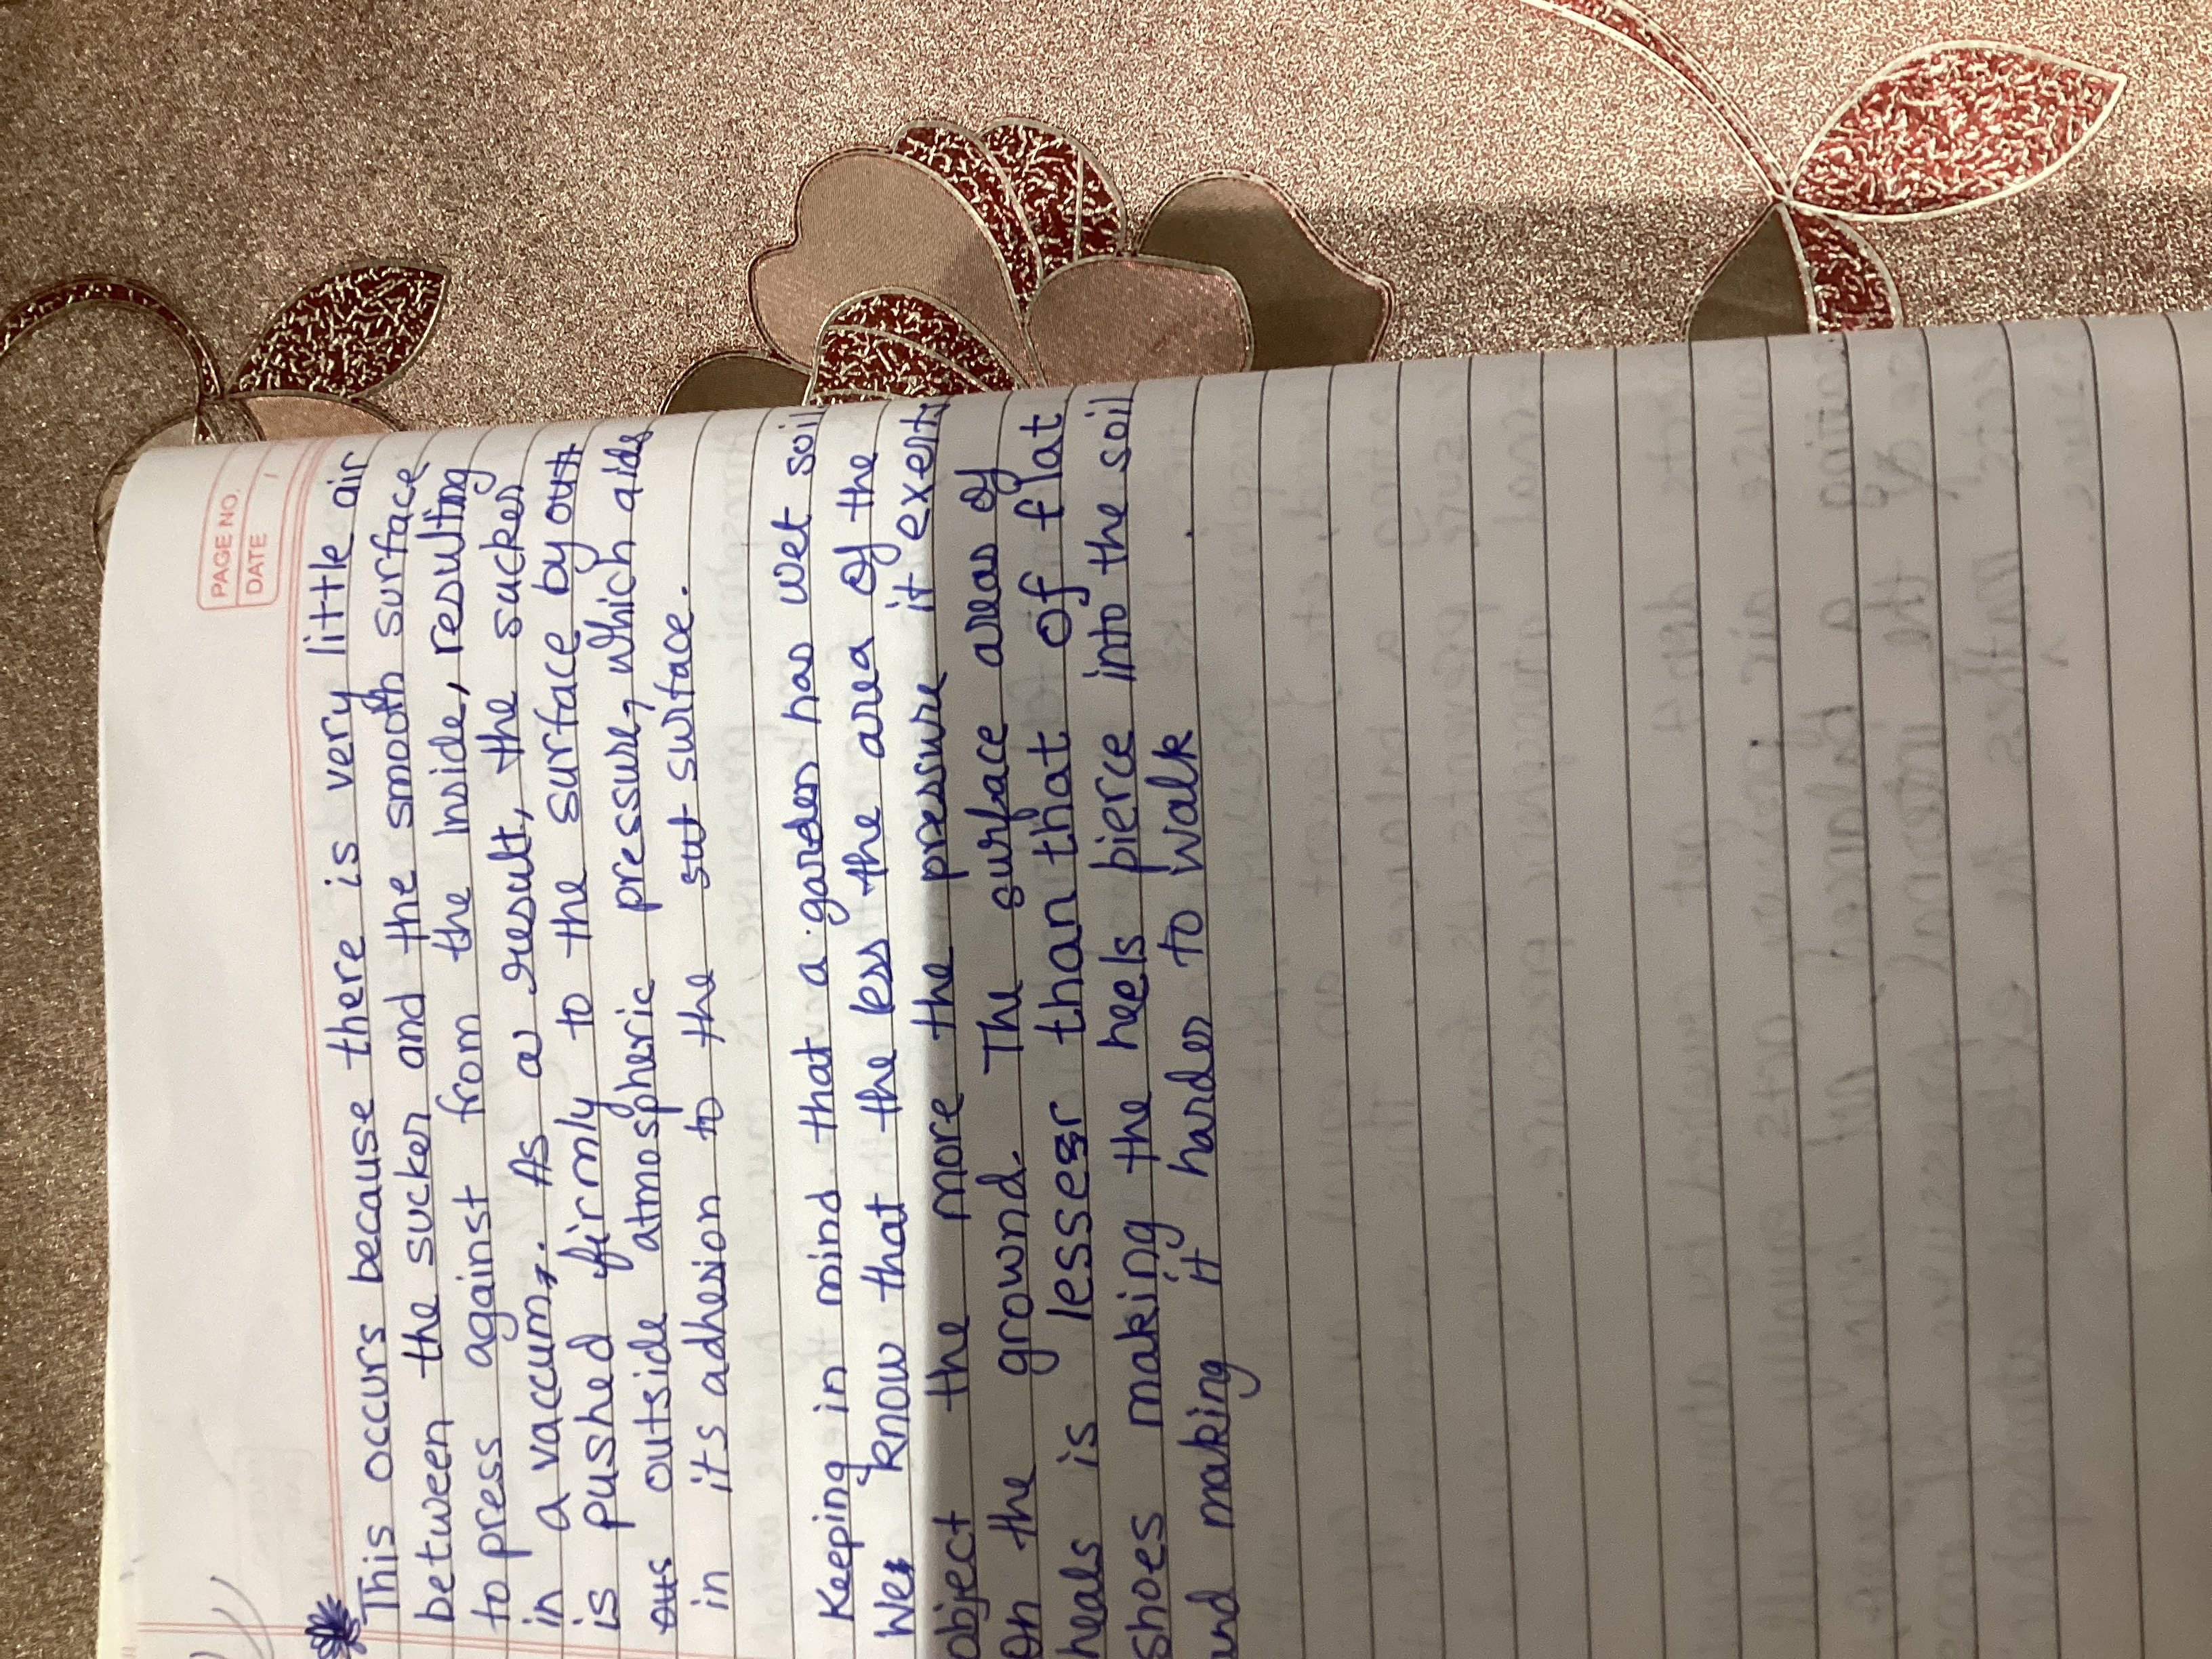 PAGE NO.
DATE / 
This occurs because there is very little air
between the sucker and the smooth surface
to press against from the inside, resulting
in a vaccum. As a result, the sucker
is pushed firmly to the surface by out
outs outside atmospheric pressure, which aids
in it's adhesion to the sut surface.
Keeping in mind that a garden has wet soil
We know that the less the area of the
object the more the pressure it exerts
on the grownd. The surface areas of
heals is lesser than that of flat
shoes making the heels pierce into the soil
and making it harder to walk